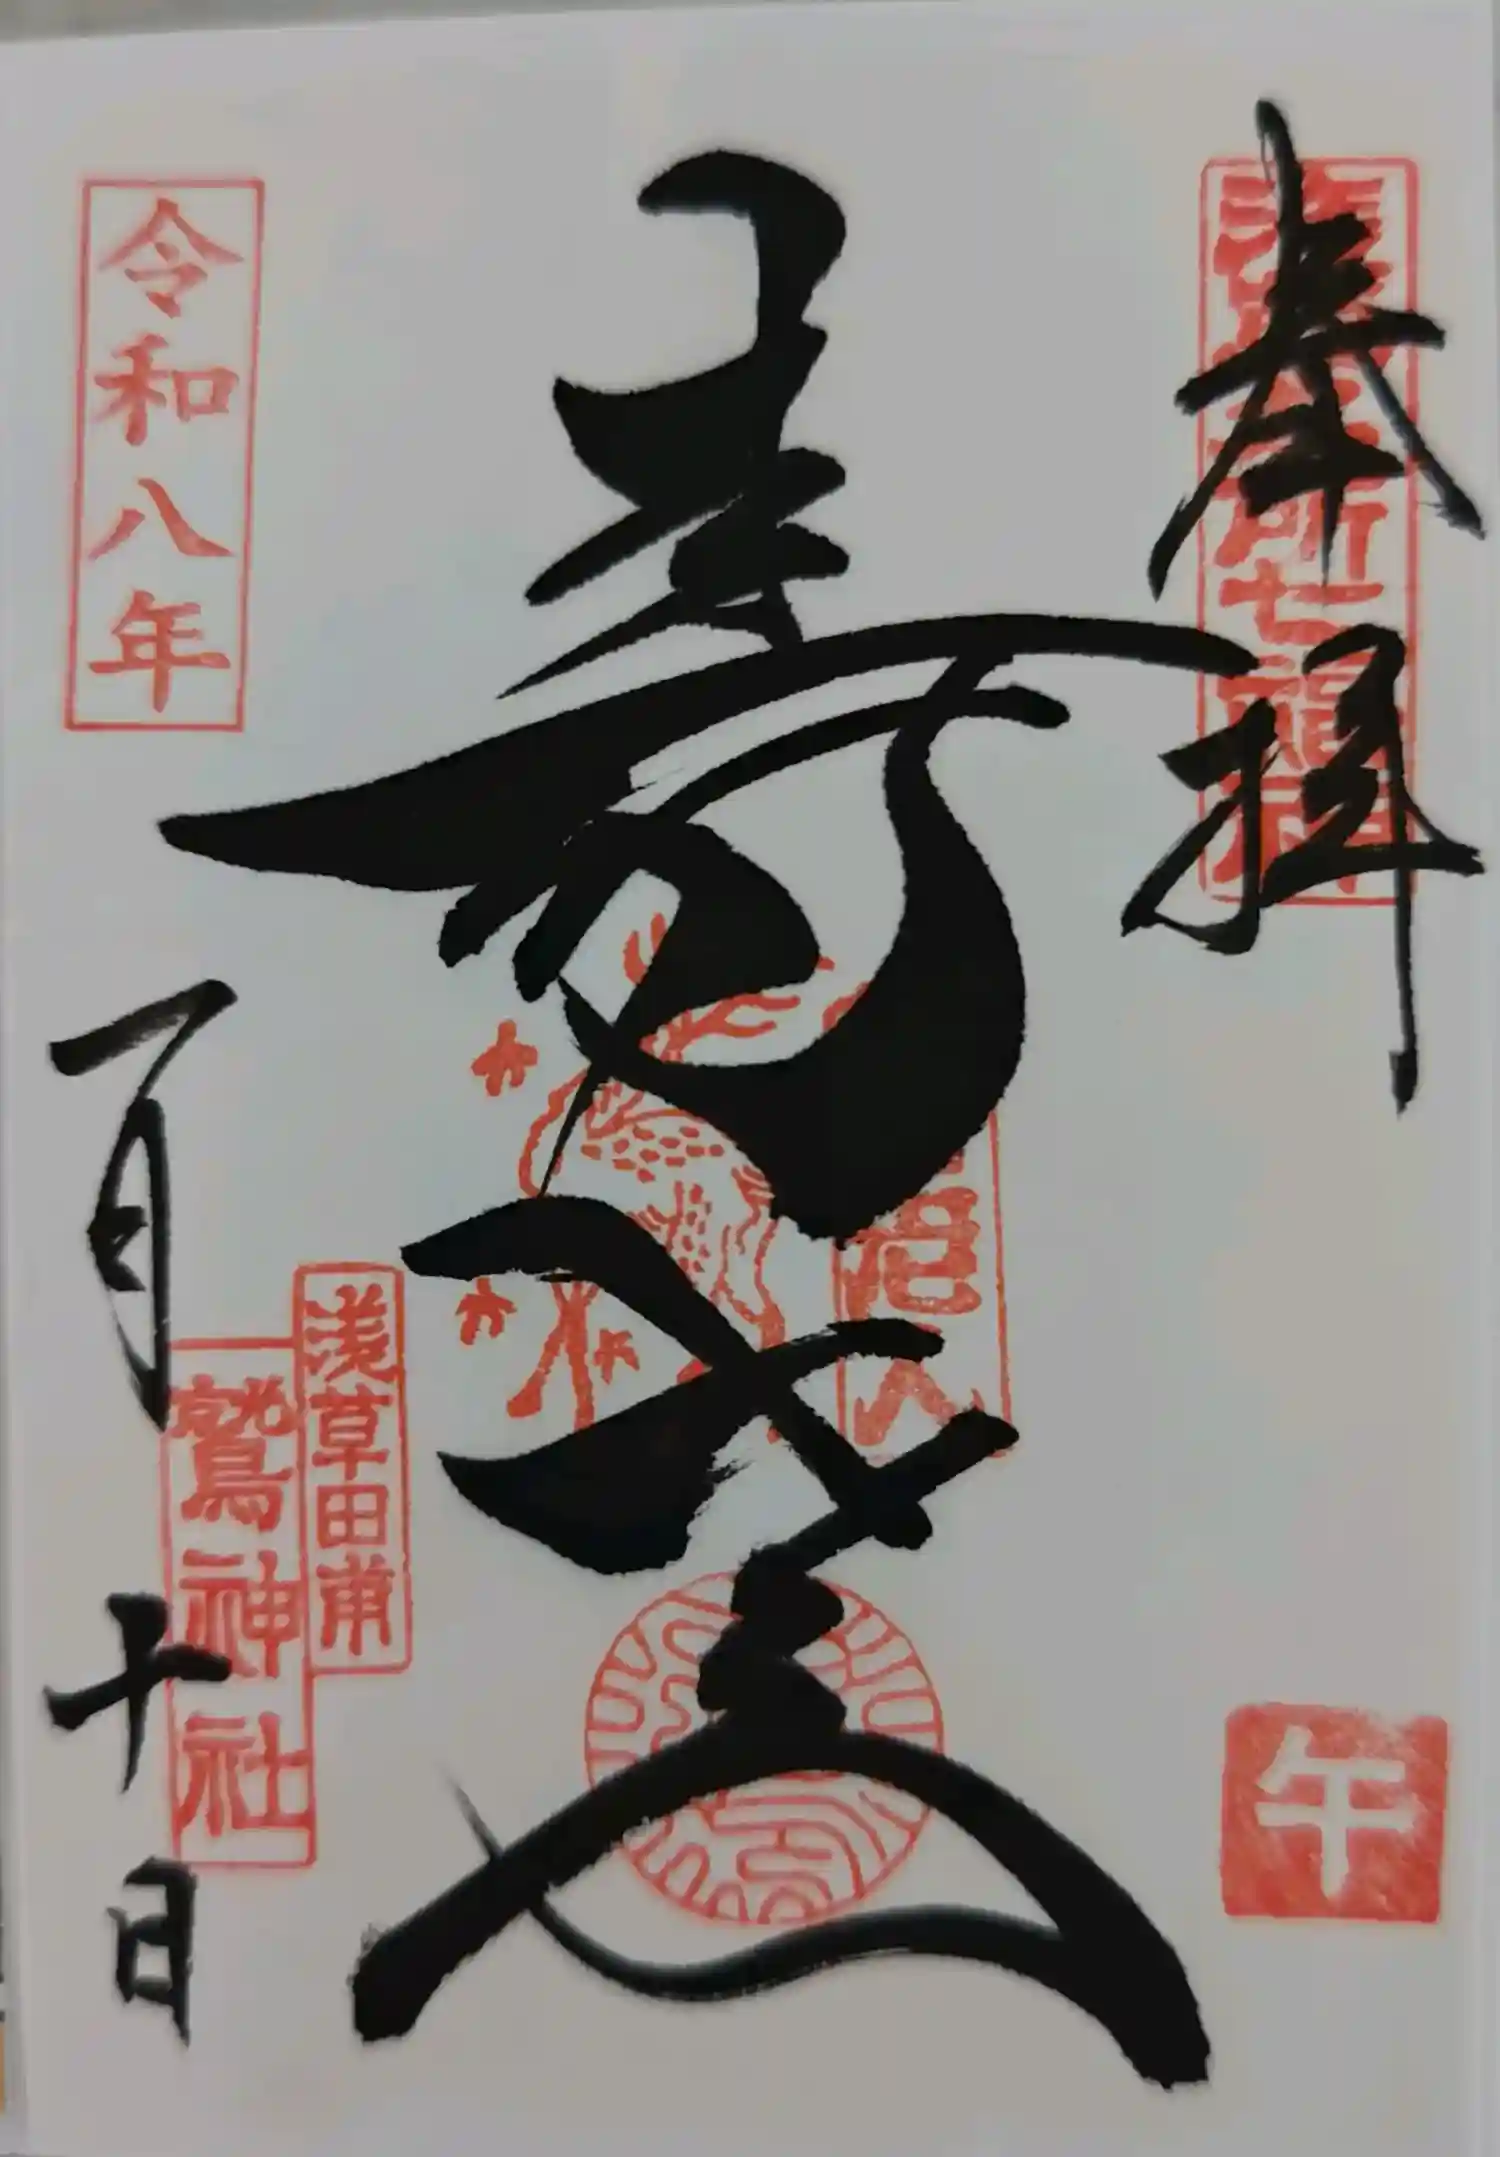 奉拝
浅草名所七福神
壽老人
老人
午
令和八年
一月十日
浅草田甫
鷲神社